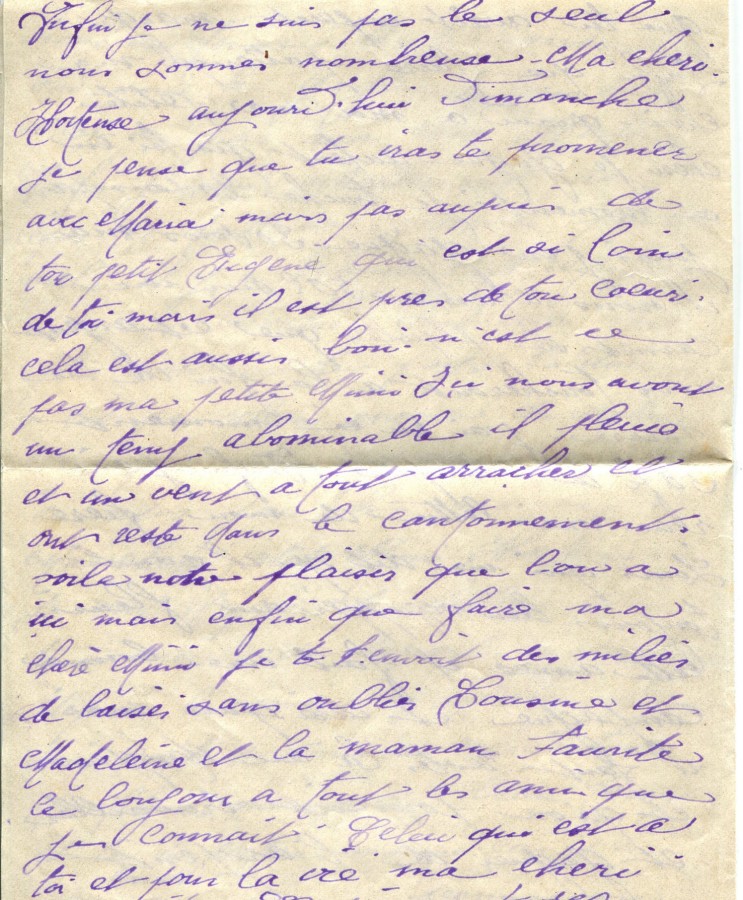 Enfin je ne suis pas le seul
nous sommes nombreuse - Ma cheri.
Hortense aujouri d'hui Dimanche
je pense que tu iras te promener
avec Maria mais pas aupris de
ton petit Eugene qui est si loin
de toi mais il est pres de ton coeur.
cela est aussis bon. n'est ce
pas ma petite Mimi Ici nous avont
un temp abominable il pleuie
et un vent a tout arracher et
ont reste dans le cantonnement.
voila notre plaisir que l'on a
ici mais enfin que faire ma
cherè Mimi je te t'envoit des miliés
de baisér sans oublier Cousine et
Madeleine et la maman Faurite
le bonjour a tout les amis que
je connait Celui qui est a
toi et pour la vie ma cheri